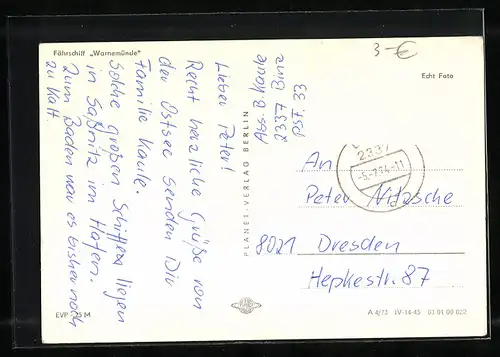 Fährschiff „Warnemünde"
3-€
Echt Foto
Abs. B. Kaule
2337 Binz
PSF. 33
Lieber Peter!
Recht herzliche Grüße von
der Ostsee senden Dir
Familie Kaule.
Solche großen Schiffe liegen
in Saßnitz im Hafen.
Zum Baden war es bisher noch
zu kalt.
PLANET-VERLAG BERLIN
2337
-5.-7.74.-11
An
Peter Nitzsche
8021 Dresden
Hepkestr. 87
EVP 25 M
A 4/73 IV-14-45 01 01 00 022